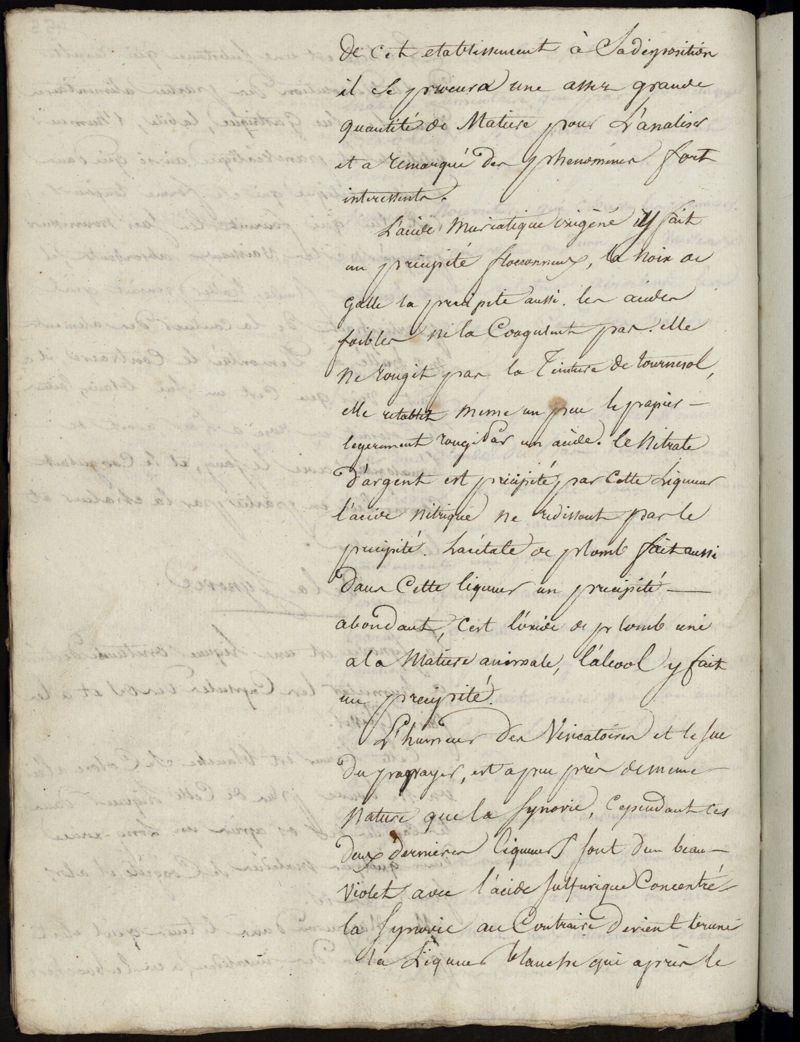 de cet etablissement à Sa disposition
il se procura une assez grande
quantité de Matiere pour L'analiser
et a remarqué des phenomenes fort
interessents.
L'acide Muriatique oxigèné y fait
un précipité floconneux, la Noix de
Galle la precipite aussi. les acides
foibles ne la Coagulent pas. elle
ne rougit pas la Teinture de tournesol,
elle retablit meme un peu le papier
legerement rougi par un acide. le Nitrate
D'argent est précipité par Cette Liqueur
l'acide Nitrique ne redissout pas le
precipité. L'acétate de plomb fait aussi
dans Cette liqueur un precipité
abondant, C'est l'oxide de plomb uni
a la Matiere animale, l'alcool y fait
un precipité.
L'humeur des Vesicatoires et le suc
du papayer, est a peu près de meme
Nature que la Synovie, Cependant ces
deux dernieres liqueurs sont d'un beau
Violet avec l'acide Sulfurique Concentré
la Synovie au Contraire devient
la Liqueur blanche qui après le